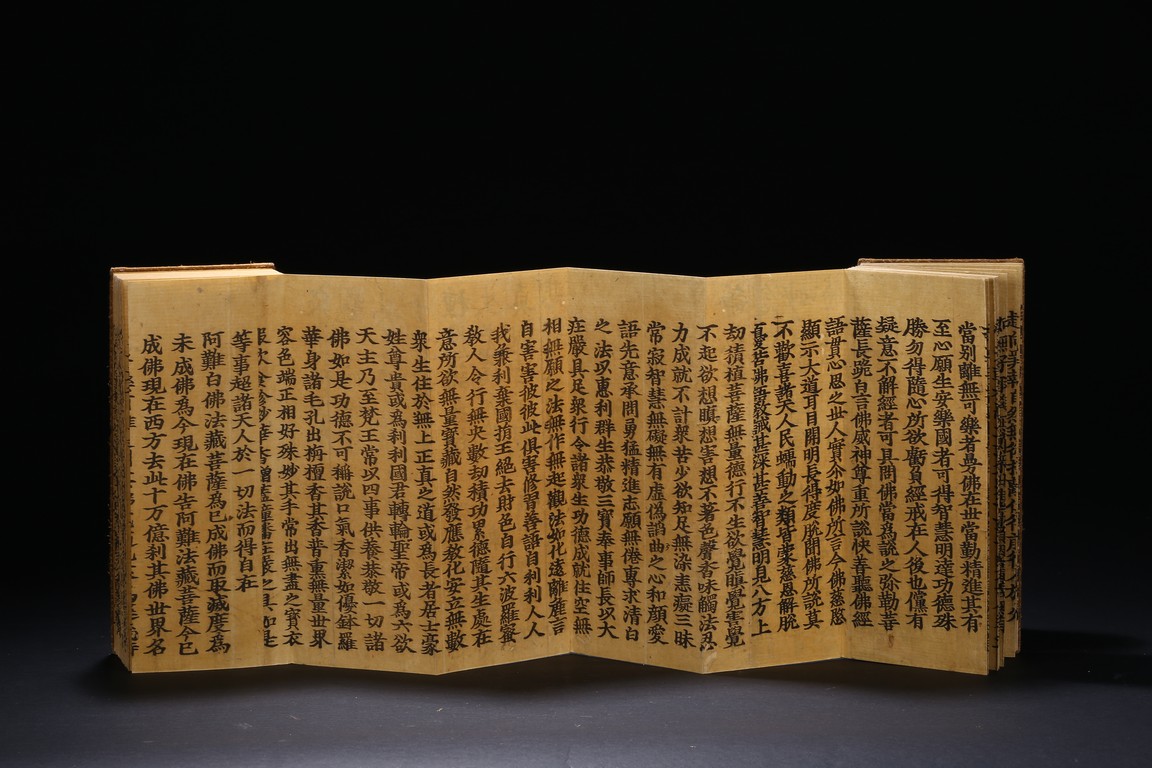 當別離無可樂者曼佛在世當勤精進其有
至心願生安樂國者可得智慧明達功德殊
勝勿得隨心所欲虧負經戒在人後也儻有
疑意不解經者可具問佛當為說之弥勒菩
薩長跪白言佛威神尊重所說快善聽佛經
語貫心思之世人實尒如佛所言今佛慈愍
顯示大道耳目開明長得度脫聞佛所說莫
不歡喜諸天人民蠕動之類皆蒙慈恩解脫
憂苦佛語教誡甚深甚善智慧明見八方上
劫積植菩薩無量德行不生欲覺瞋覺害覺
不起欲想瞋想害想不著色聲香味觸法忍
力成就不計衆苦少欲知足無染恚癡三昧
常寂智慧無礙無有虛偽諂曲之心和顏愛
語先意承問勇猛精進志願無倦專求清白
之法以惠利群生恭敬三寶奉事師長以大
莊嚴具足衆行令諸衆生功德成就住空無
相無願之法無作無起觀法如化遠離麁言
自害害彼彼此俱害修習善語自利利人人
我兼利棄國捐王絕去財色自行六波羅蜜
教人令行無央數劫積功累德隨其生處在
意所欲無量寶藏自然發應教化安立無數
衆生住於無上正真之道或為長者居士豪
姓尊貴或為刹利國君轉輪聖帝或為六欲
天主乃至梵王常以四事供養恭敬一切諸
佛如是功德不可稱說口氣香潔如優鉢羅
華身諸毛孔出栴檀香其香普熏無量世界
容色端正相好殊妙其手常出無盡之寶衣
服飲食珍妙華香繒蓋幢幡莊嚴之具如是
等事超諸天人於一切法而得自在
阿難白佛法藏菩薩為已成佛而取滅度為
未成佛為今現在佛告阿難法藏菩薩今已
成佛現在西方去此十万億刹其佛世界名